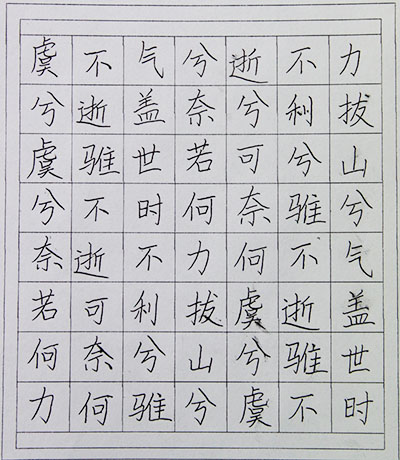 力拔山兮气盖世时
不利兮骓不逝骓不
逝兮可奈何虞兮虞
兮奈若何力拔山兮
气盖世时不利兮骓
不逝骓不逝可奈何
虞兮虞兮奈若何力